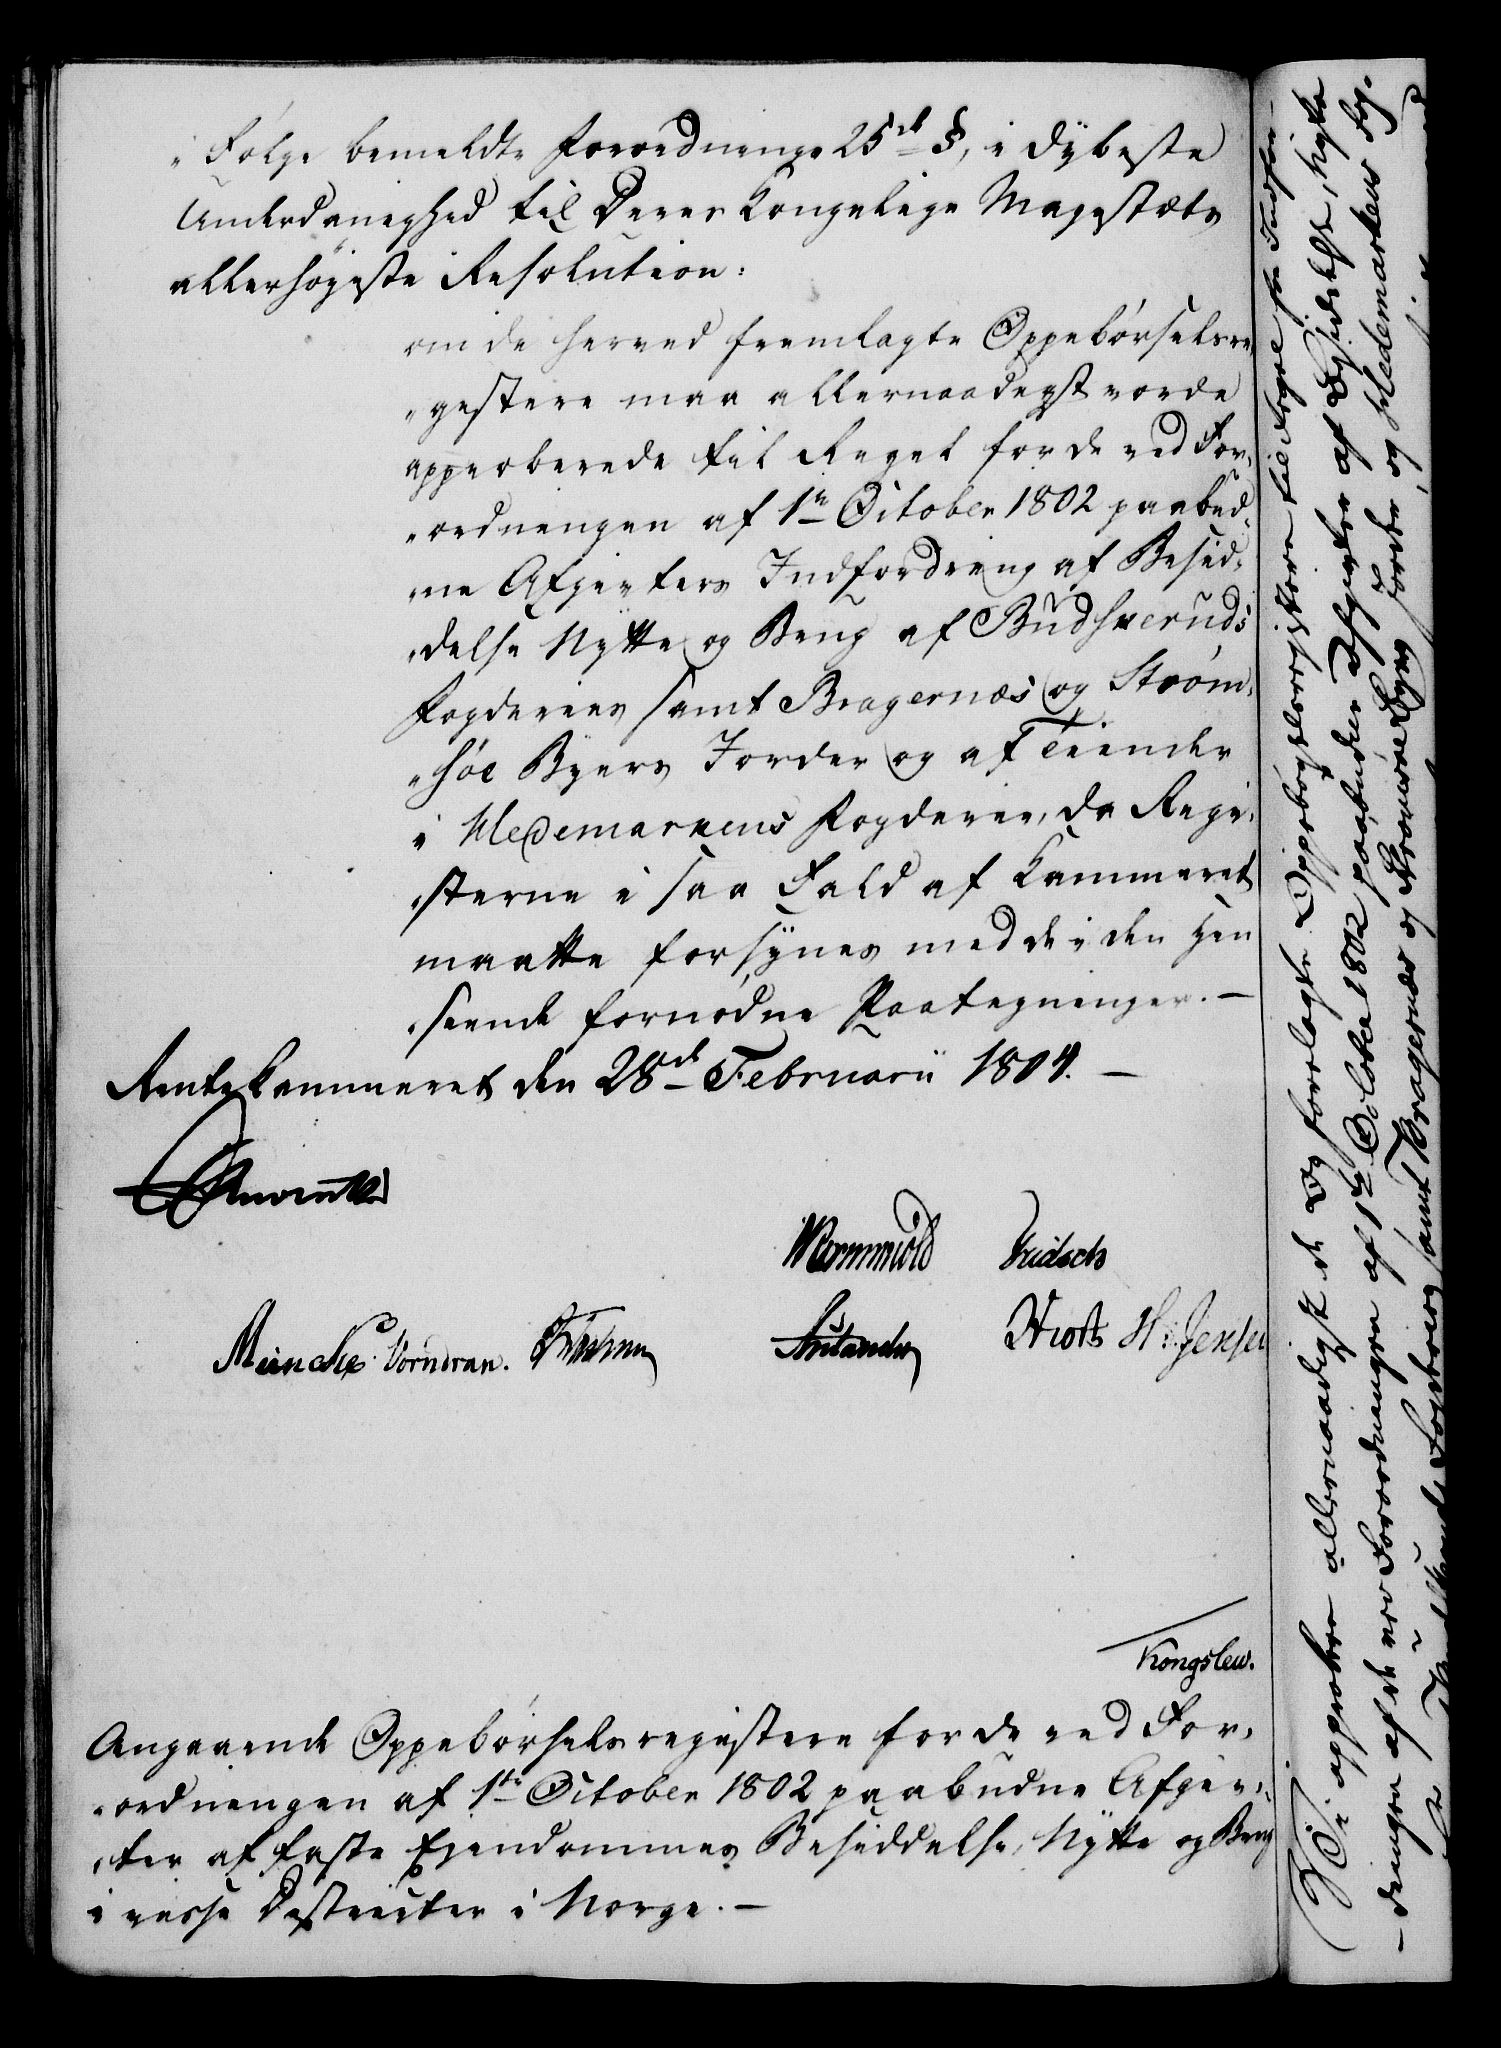 „Følge bemeldte Forordnings 25de §, i dybeste
Underdanighed til Deres Kongelige Majestæts
allerhøjeste Resolution:
om de herved fremlagte Oppebørselsre„
„gistere maa allernaadigst vorde
approberede til Regel for de ved For„
„ordningen af 1te October 1802 paabud„
„ne Afgivters Indfordring af Besid„
„delse Nytte og Brug af Budsheruds
Fogderies samt Bragernæs og Strøm„
„søe Byers Jorder og af Tiender
i Hedemarkens Fogderie, da Regi„
„sterne i saa Fald af Kammeret
maatte forsynes med de i den Hen
„seende fornødne Paategninger. —
Rentekammeret den 28de Februarii 1804. —
Wormskiold Fridsch
Meincke Vorndran.
Hiorth H: Jensen
Kongslew.
Angaaende Oppebørselsregistere for de ved For„
„ordningen af 1te October 1802 paabudne Afgiv„
„ter af faste Ejendommes Besiddelse, Nytte og Brug
i visse Districter i Norge. —
Vi approbere allernaadigst de Os forelagte Oppebørselsregistere til Følge for Indfor„
„dringen af de ved Forordningen af 1te October 1802 paabudne Afgivter af Besiddelse, Nytte
samt Bragernæs og Strømsøe Byers Jorder, og Hedemarkens Fog„